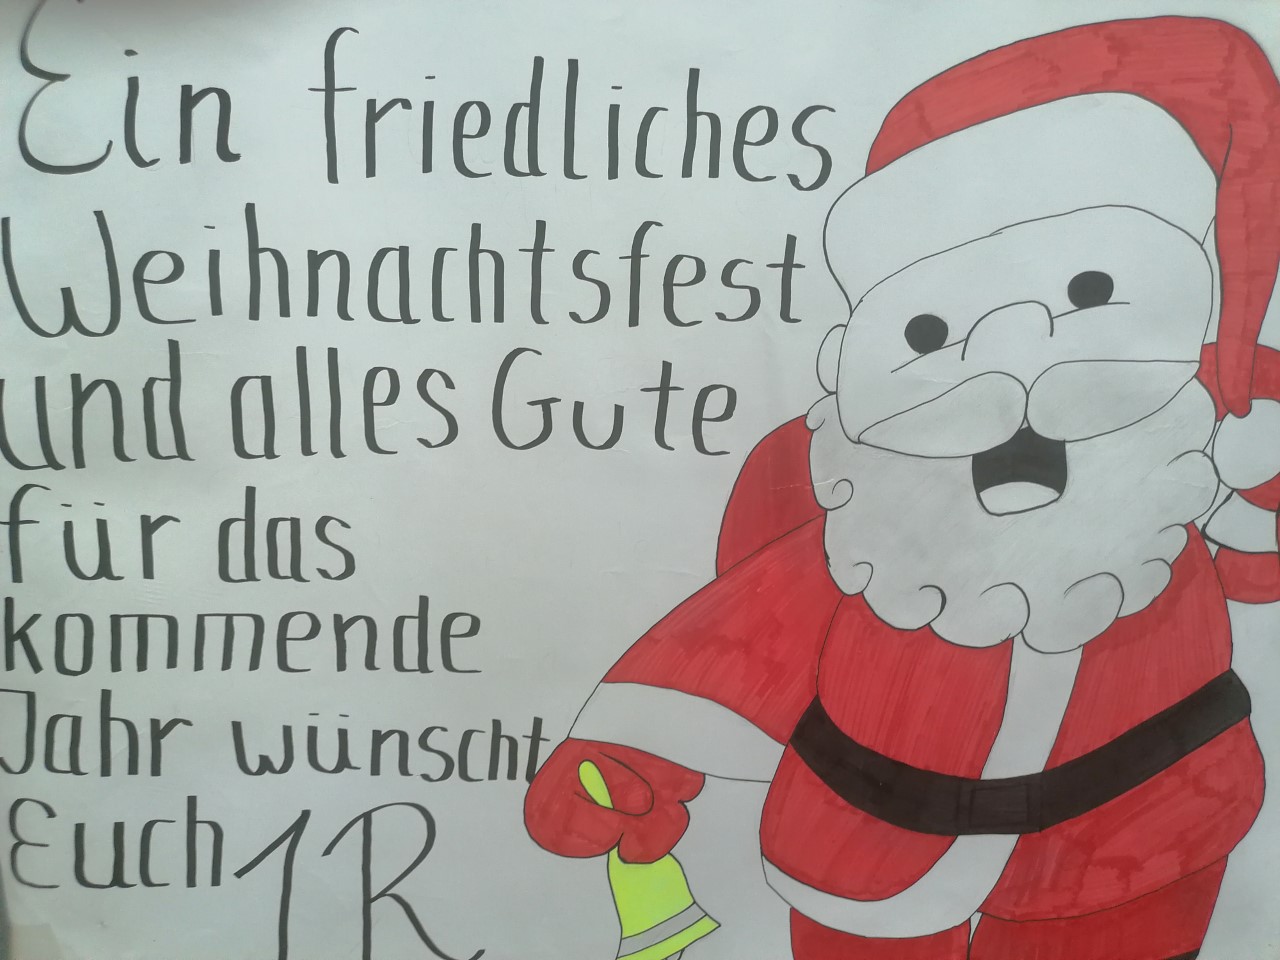 Ein friedliches
Weihnachtsfest
und alles Gute
für das
kommende
Jahr wünscht
Euch 1R